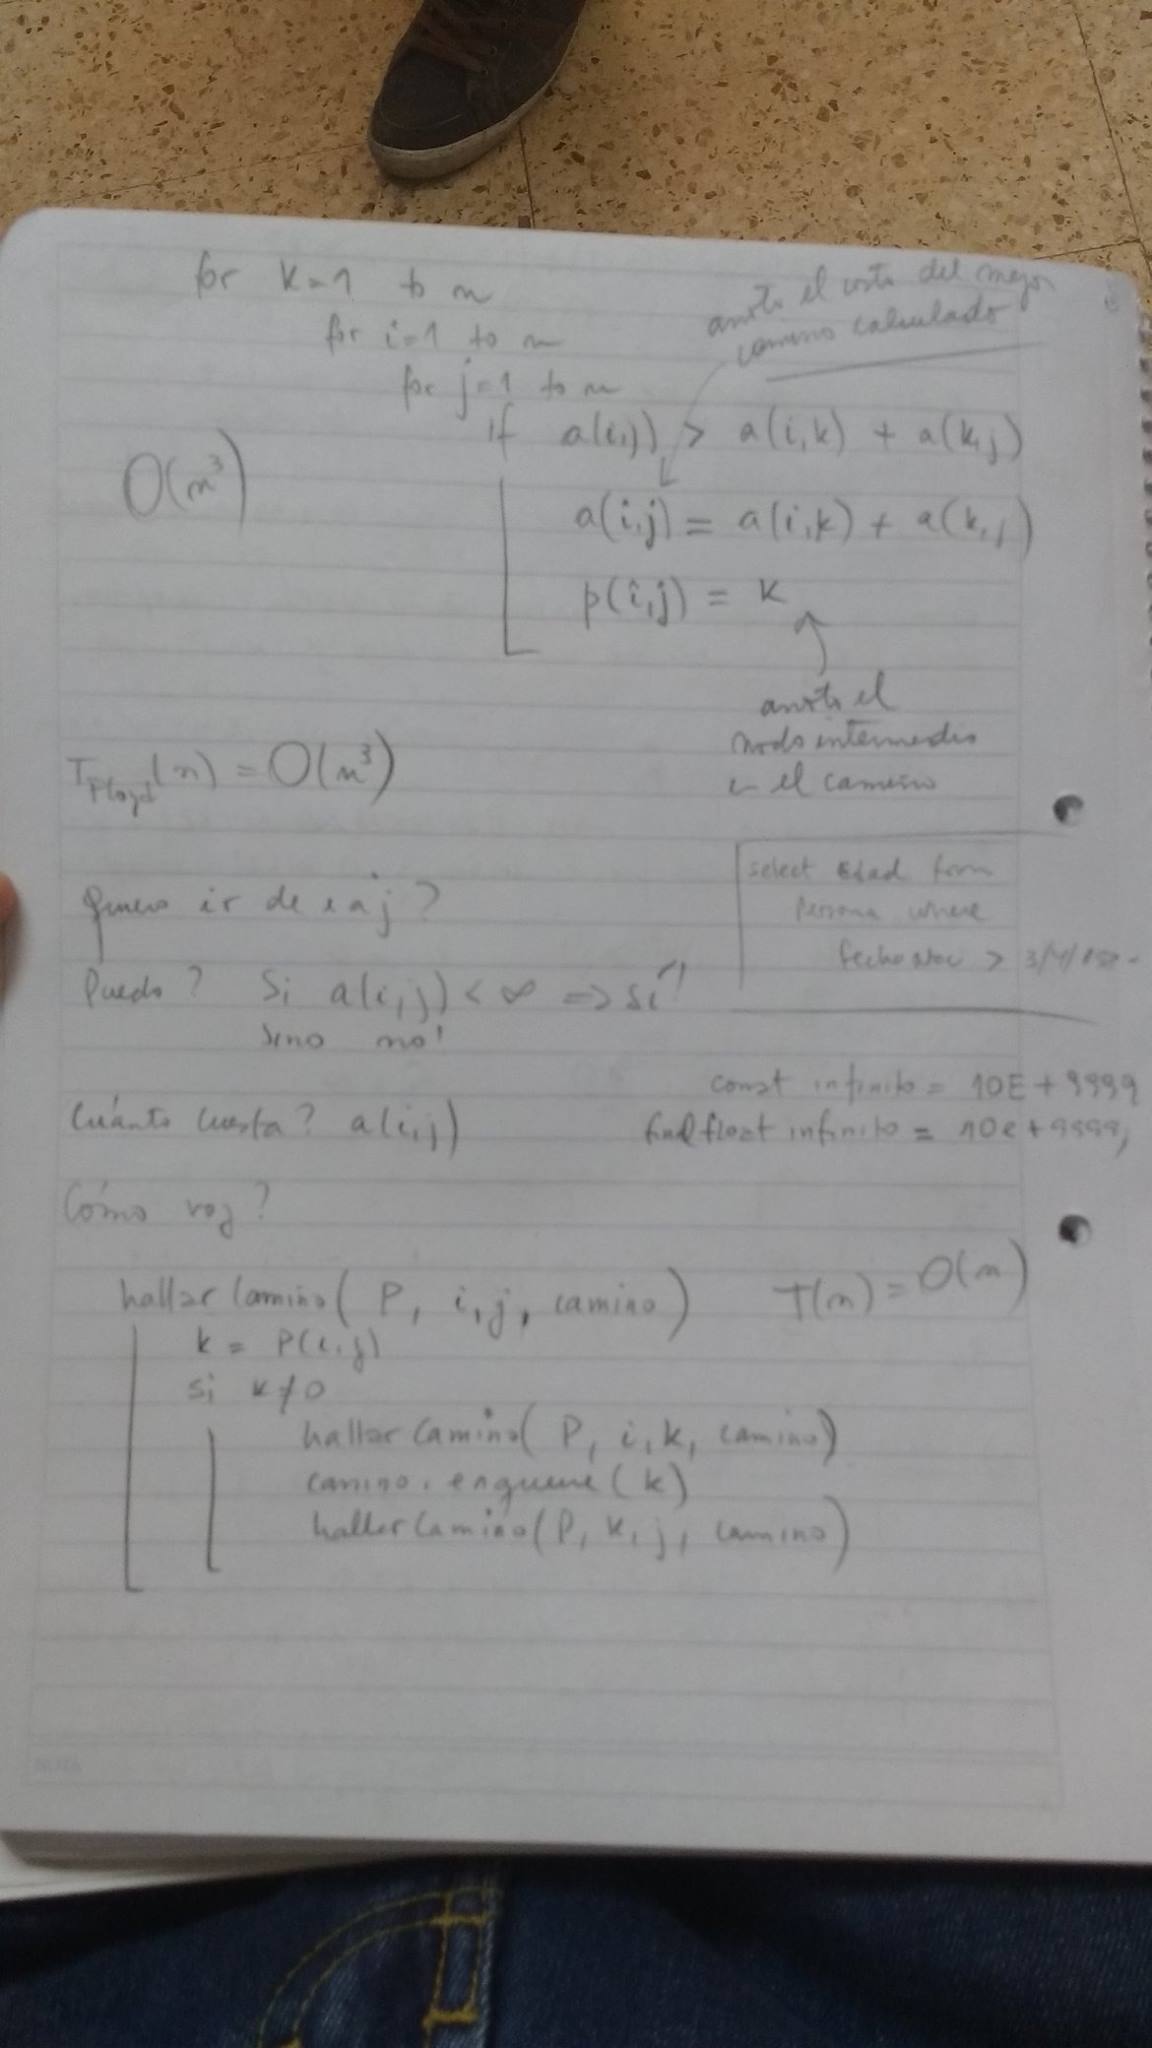 for k=1 to n
for i=1 to n
for j=1 to n
anoto el costo del mejor
camino calculado
if a(i,j) > a(i,k) + a(k,j)
O(n³)
a(i,j) = a(i,k) + a(k,j)
p(i,j) = k
anoto el
nodo intermedio
en el camino
T Floyd (n) = O(n³)
select edad from
Persona where
fechaNac >
Quiero ir de i a j?
Puedo? Si a(i,j) < ∞ => sí!
sino no!
const infinito = 10E+9999
final float infinito = 10e+9999;
Cuánto cuesta? a(i,j)
Cómo voy?
hallarCamino( P, i, j, camino) T(n) = O(n)
k = P(i,j)
si k≠0
hallarCamino( P, i, k, camino)
camino.enqueue(k)
hallarCamino(P, k, j, camino)